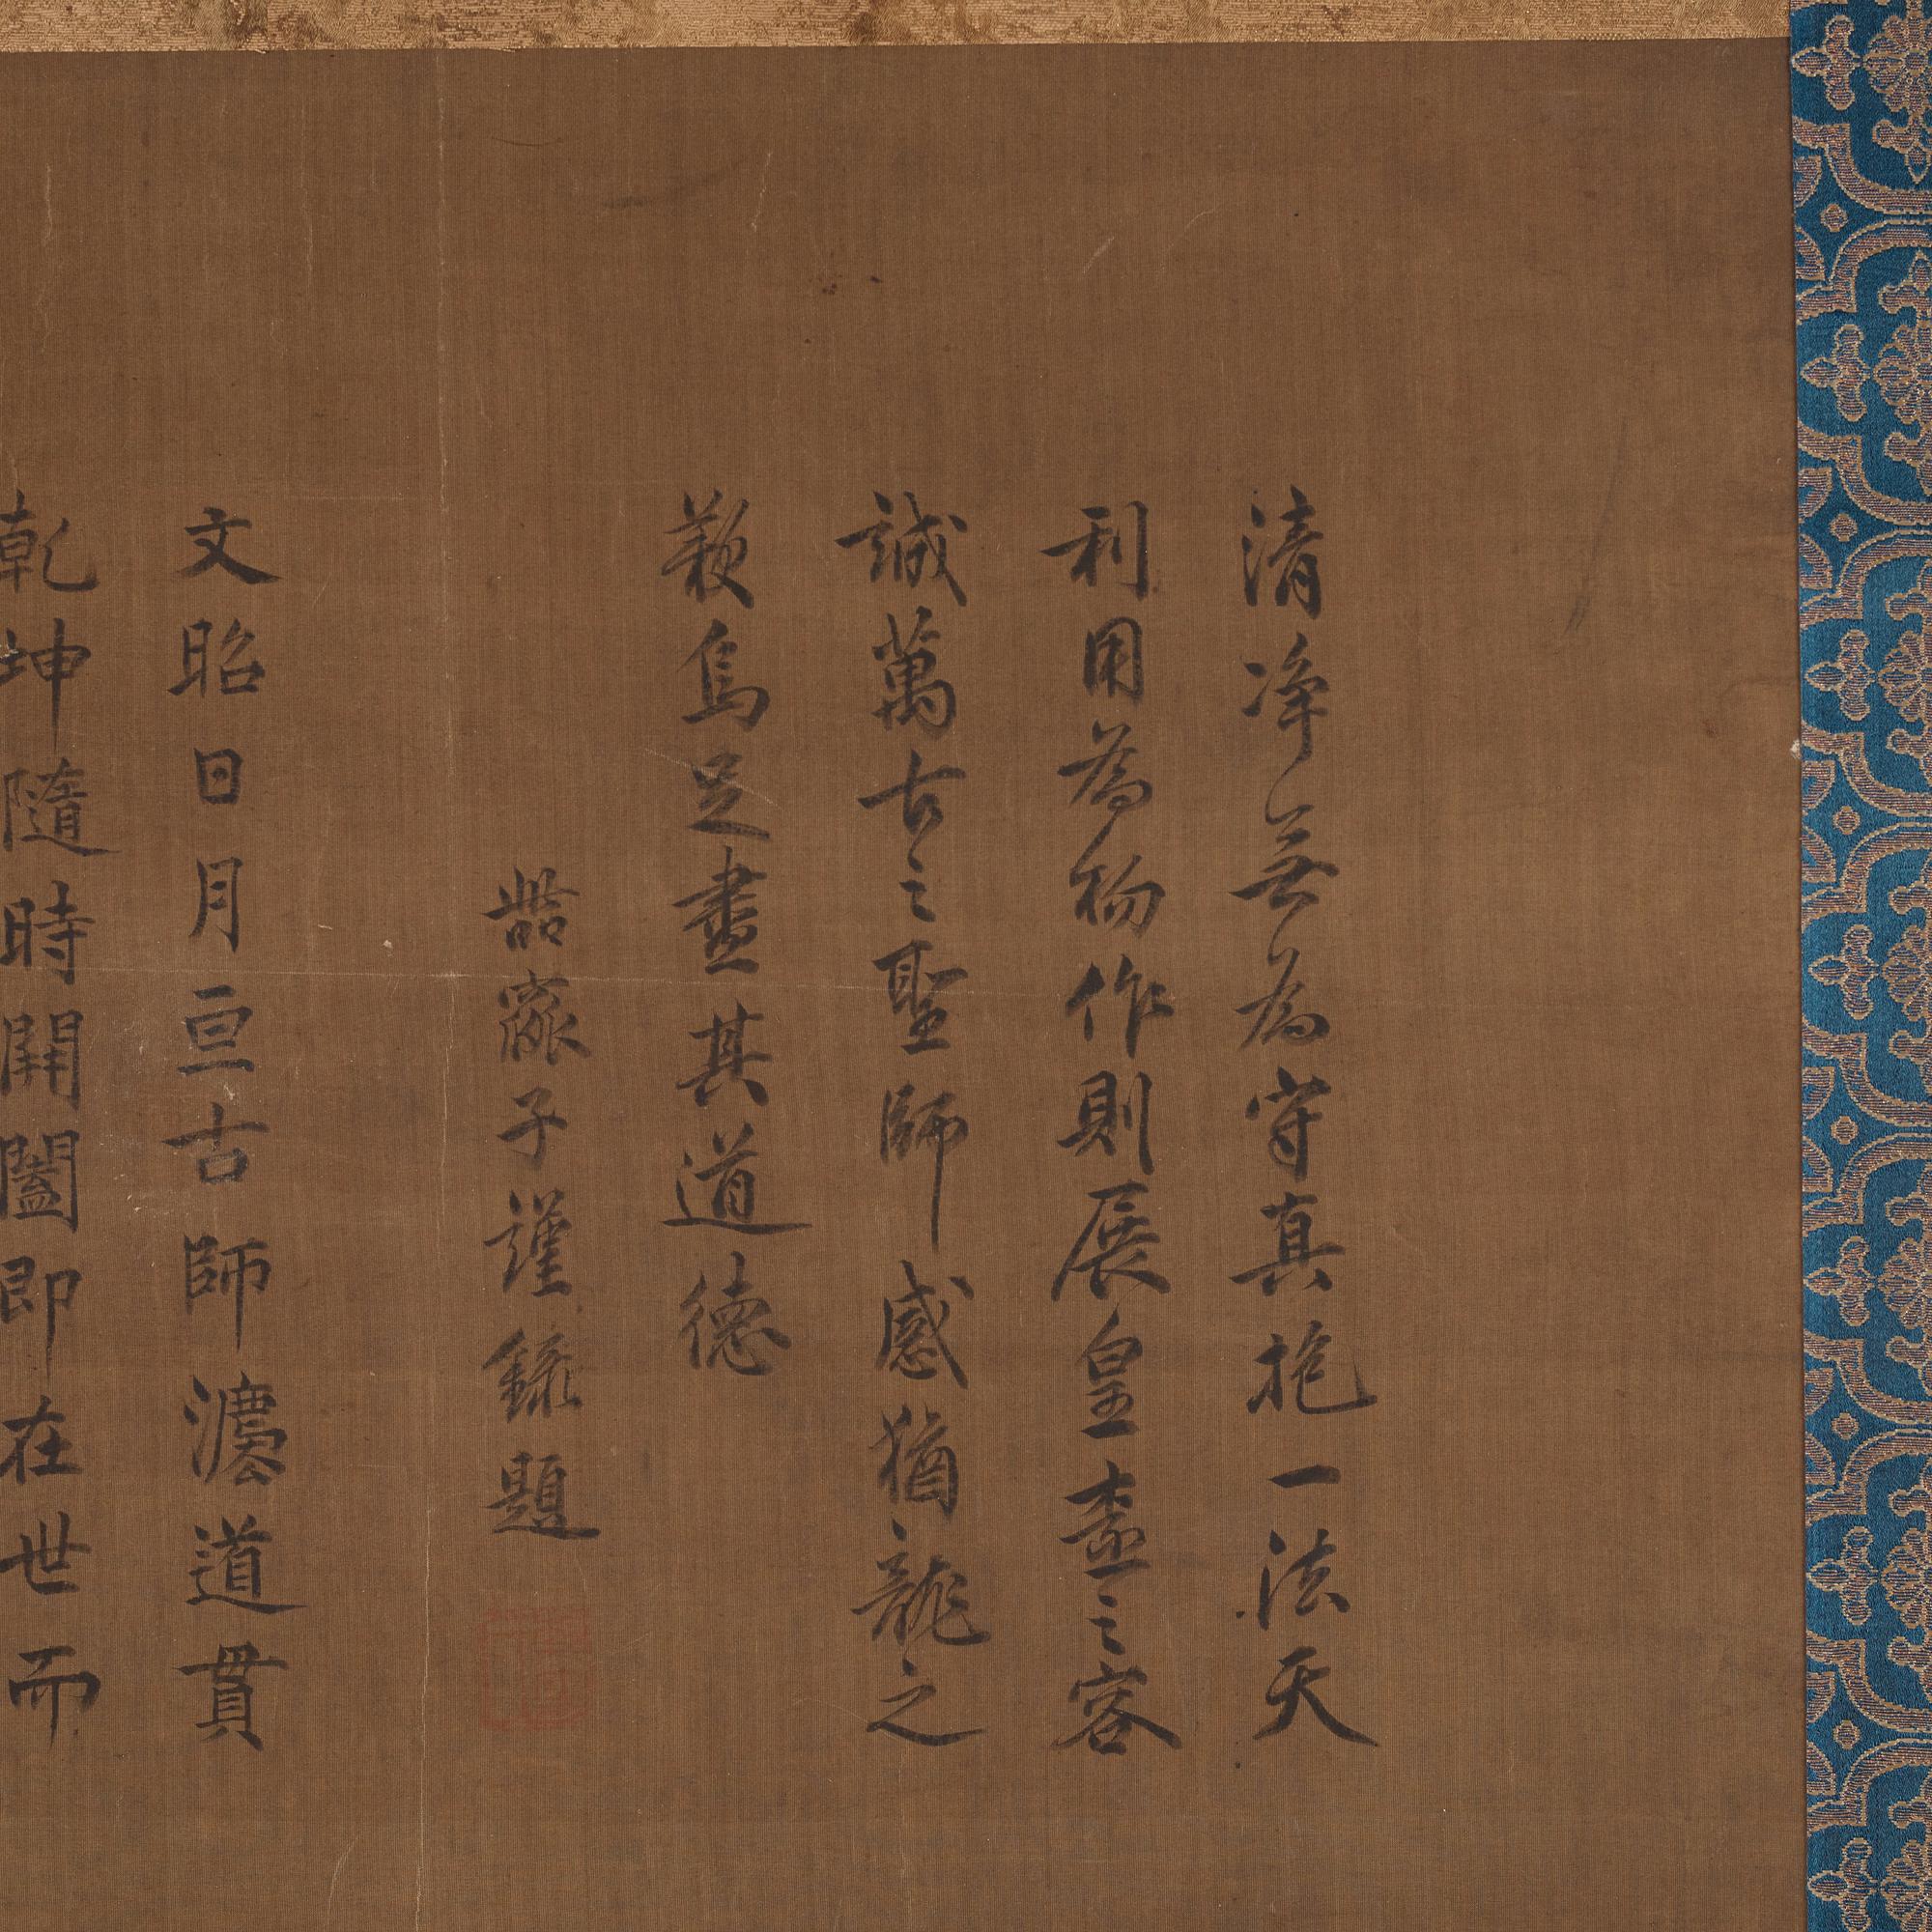 清淨無為守真抱一法天
利用為物作則展皇極之容
誠萬古之聖師感猶龍之
歎烏足盡其道德
子謹錄題
文昭日月亘古師瀍道貫
乾坤隨時開闔即在世而